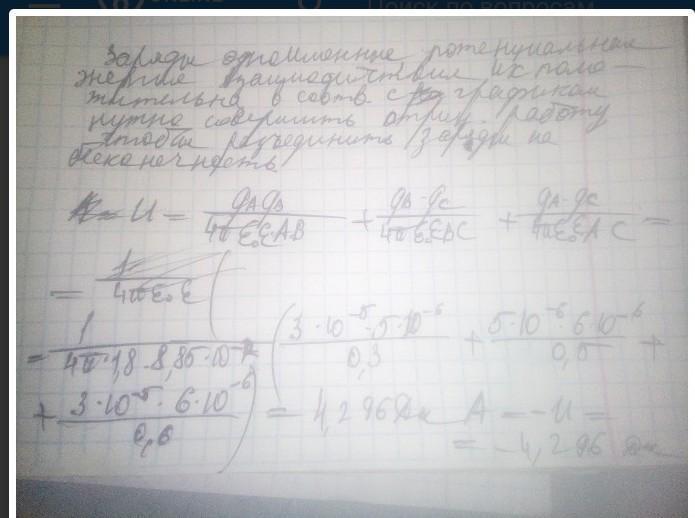 ONLINE
Поиск по вопросам
Заряды одноименные, потенциальная
энергия взаимодичствия их поло-
жительна в соотв. с графиком
нужно совершить отриц. работу
чтобы разъединить заряды на
бесконечность.
U = qAqB/4πε₀ε·AB + qB·qC/4πε₀εBC + qA·qC/4πε₀εAC =
= 1/4πε₀ε (
= 1/4π·1,8·8,85·10⁻¹² (3·10⁻⁵·5·10⁻⁶/0,3 + 5·10⁻⁶·6·10⁻⁶/0,5 +
+ 3·10⁻⁵·6·10⁻⁶/0,6) = 4,296Дж A = -U =
= -4,296 Дж